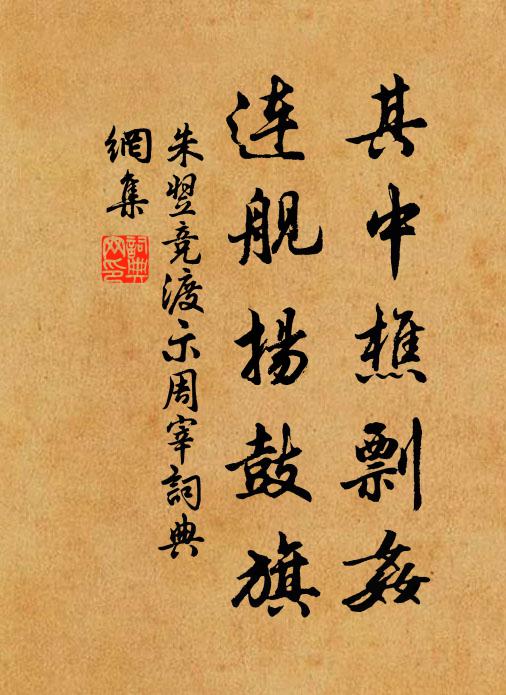 其中樵剽姦
连舰揚鼓旗
朱翌竞渡示周宰詞典
網集
詞典
网印